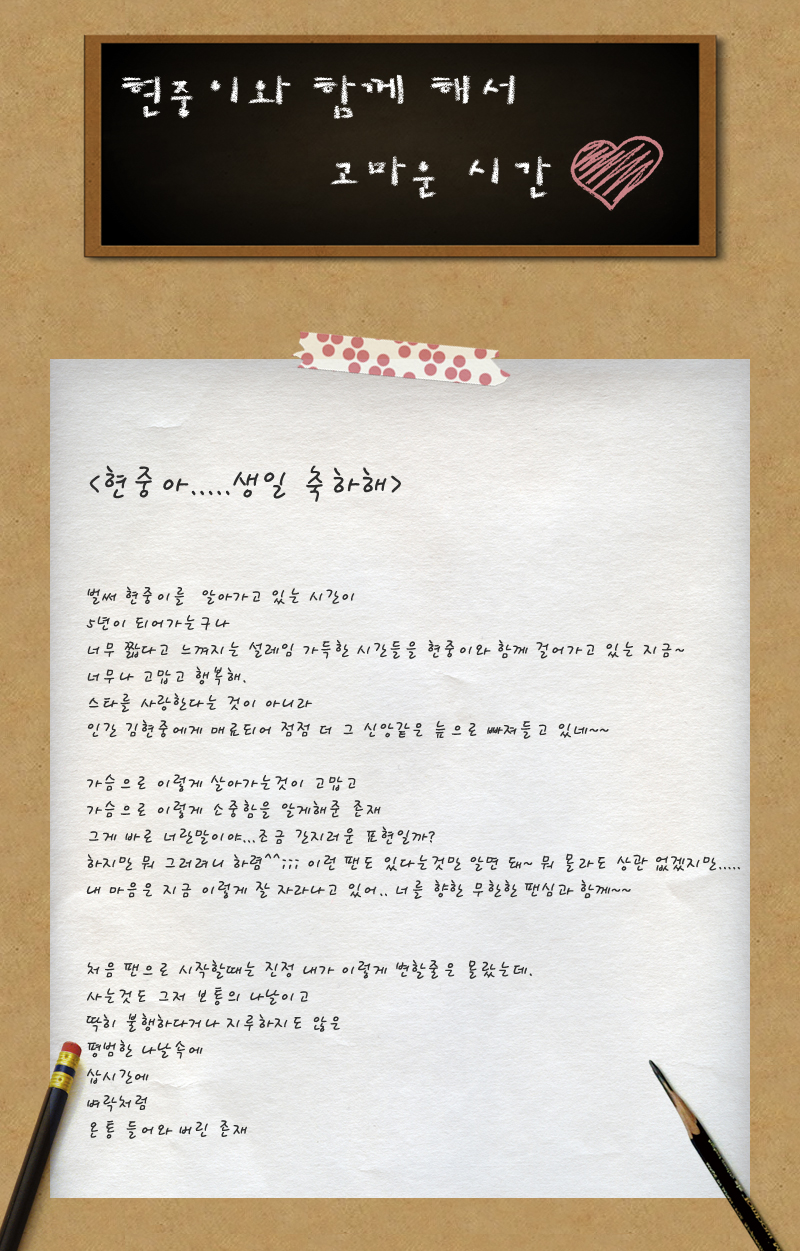 현중이와 함께 해서
고마운 시간
<현중아.....생일 축하해>
벌써 현중이를 알아가고 있는 시간이
5년이 되어가는구나
너무 짧다고 느껴지는 설레임 가득한 시간들을 현중이와 함께 걸어가고 있는 지금~
너무나 고맙고 행복해.
스타를 사랑한다는 것이 아니라
인간 김현중에게 매료되어 점점 더 그 신앙같은 늪으로 빠져들고 있네~~
가슴으로 이렇게 살아가는것이 고맙고
가슴으로 이렇게 소중함을 알게해준 존재
그게 바로 너란말이야...조금 간지러운 표현일까?
하지만 뭐 그러려니 하렴^^;;; 이런 팬도 있다는것만 알면 돼~ 뭐 몰라도 상관 없겠지만.....
내 마음은 지금 이렇게 잘 자라나고 있어.. 너를 향한 무한한 팬심과 함께~~
처음 팬으로 시작할때는 진정 내가 이렇게 변할줄은 몰랐는데.
사는것도 그저 보통의 나날이고
딱히 불행하다거나 지루하지도 않은
평범한 나날속에
삽시간에
벼락처럼
온통 들어와 버린 존재